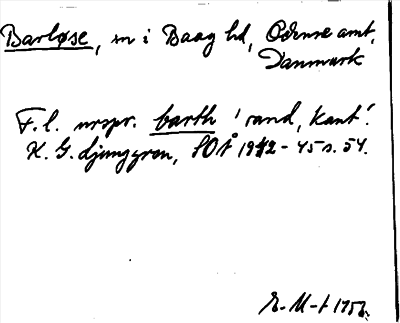 Barløse, sn i Baag hd, Odense amt,
Danmark
F.l. urspr. barth 'rand, kant'.
K. G. Ljunggren, SOÅ 1942-45 s. 54.